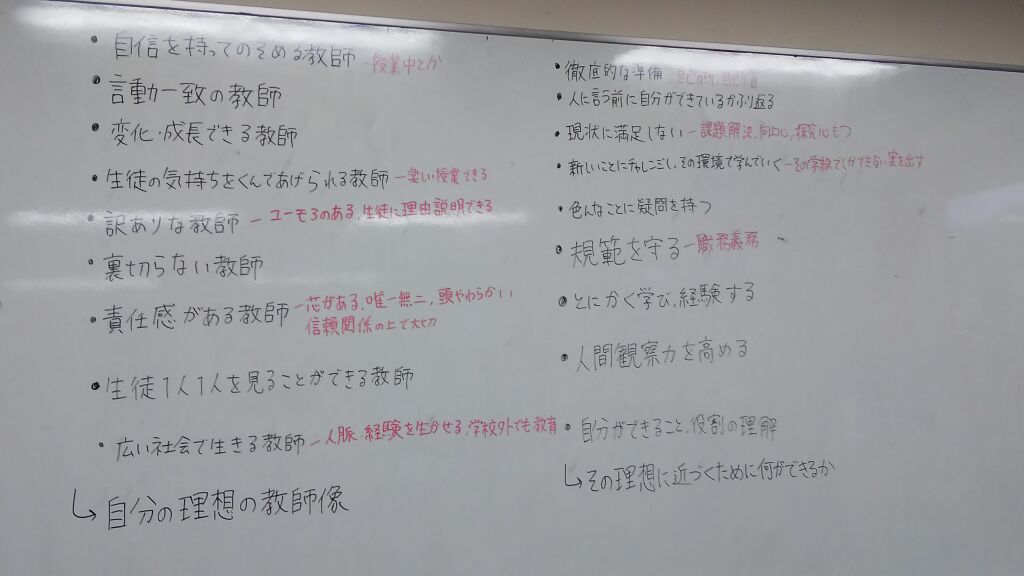 ・自信を持ってのぞめる教師 ー授業中とか
・言動一致の教師
・変化・成長できる教師
・生徒の気持ちをくんであげられる教師 ー楽しい授業できる
・訳ありな教師 ーユーモアのある,生徒に理由説明できる
・裏切らない教師
・責任感がある教師 ー芯がある,唯一無二,頭やわらかい
信頼関係の上で大切
・生徒1人1人を見ることができる教師
・広い社会で生きる教師 ー人脈・経験を生かせる,学校外でも教育
↳自分の理想の教師像
・徹底的な準備 ー自己分析,自己
・人に言う前に自分ができているかふり返る
・現状に満足しない ー課題解決,向上心,探究心もつ
・新しいことにチャレンジし,その環境で学んでいく ーその学校でしかできない実を出す
・色んなことに疑問を持つ
・規範を守る ー職務義務
・とにかく学び,経験する
・人間観察力を高める
・自分ができること,役割の理解
↳その理想に近づくために何ができるか